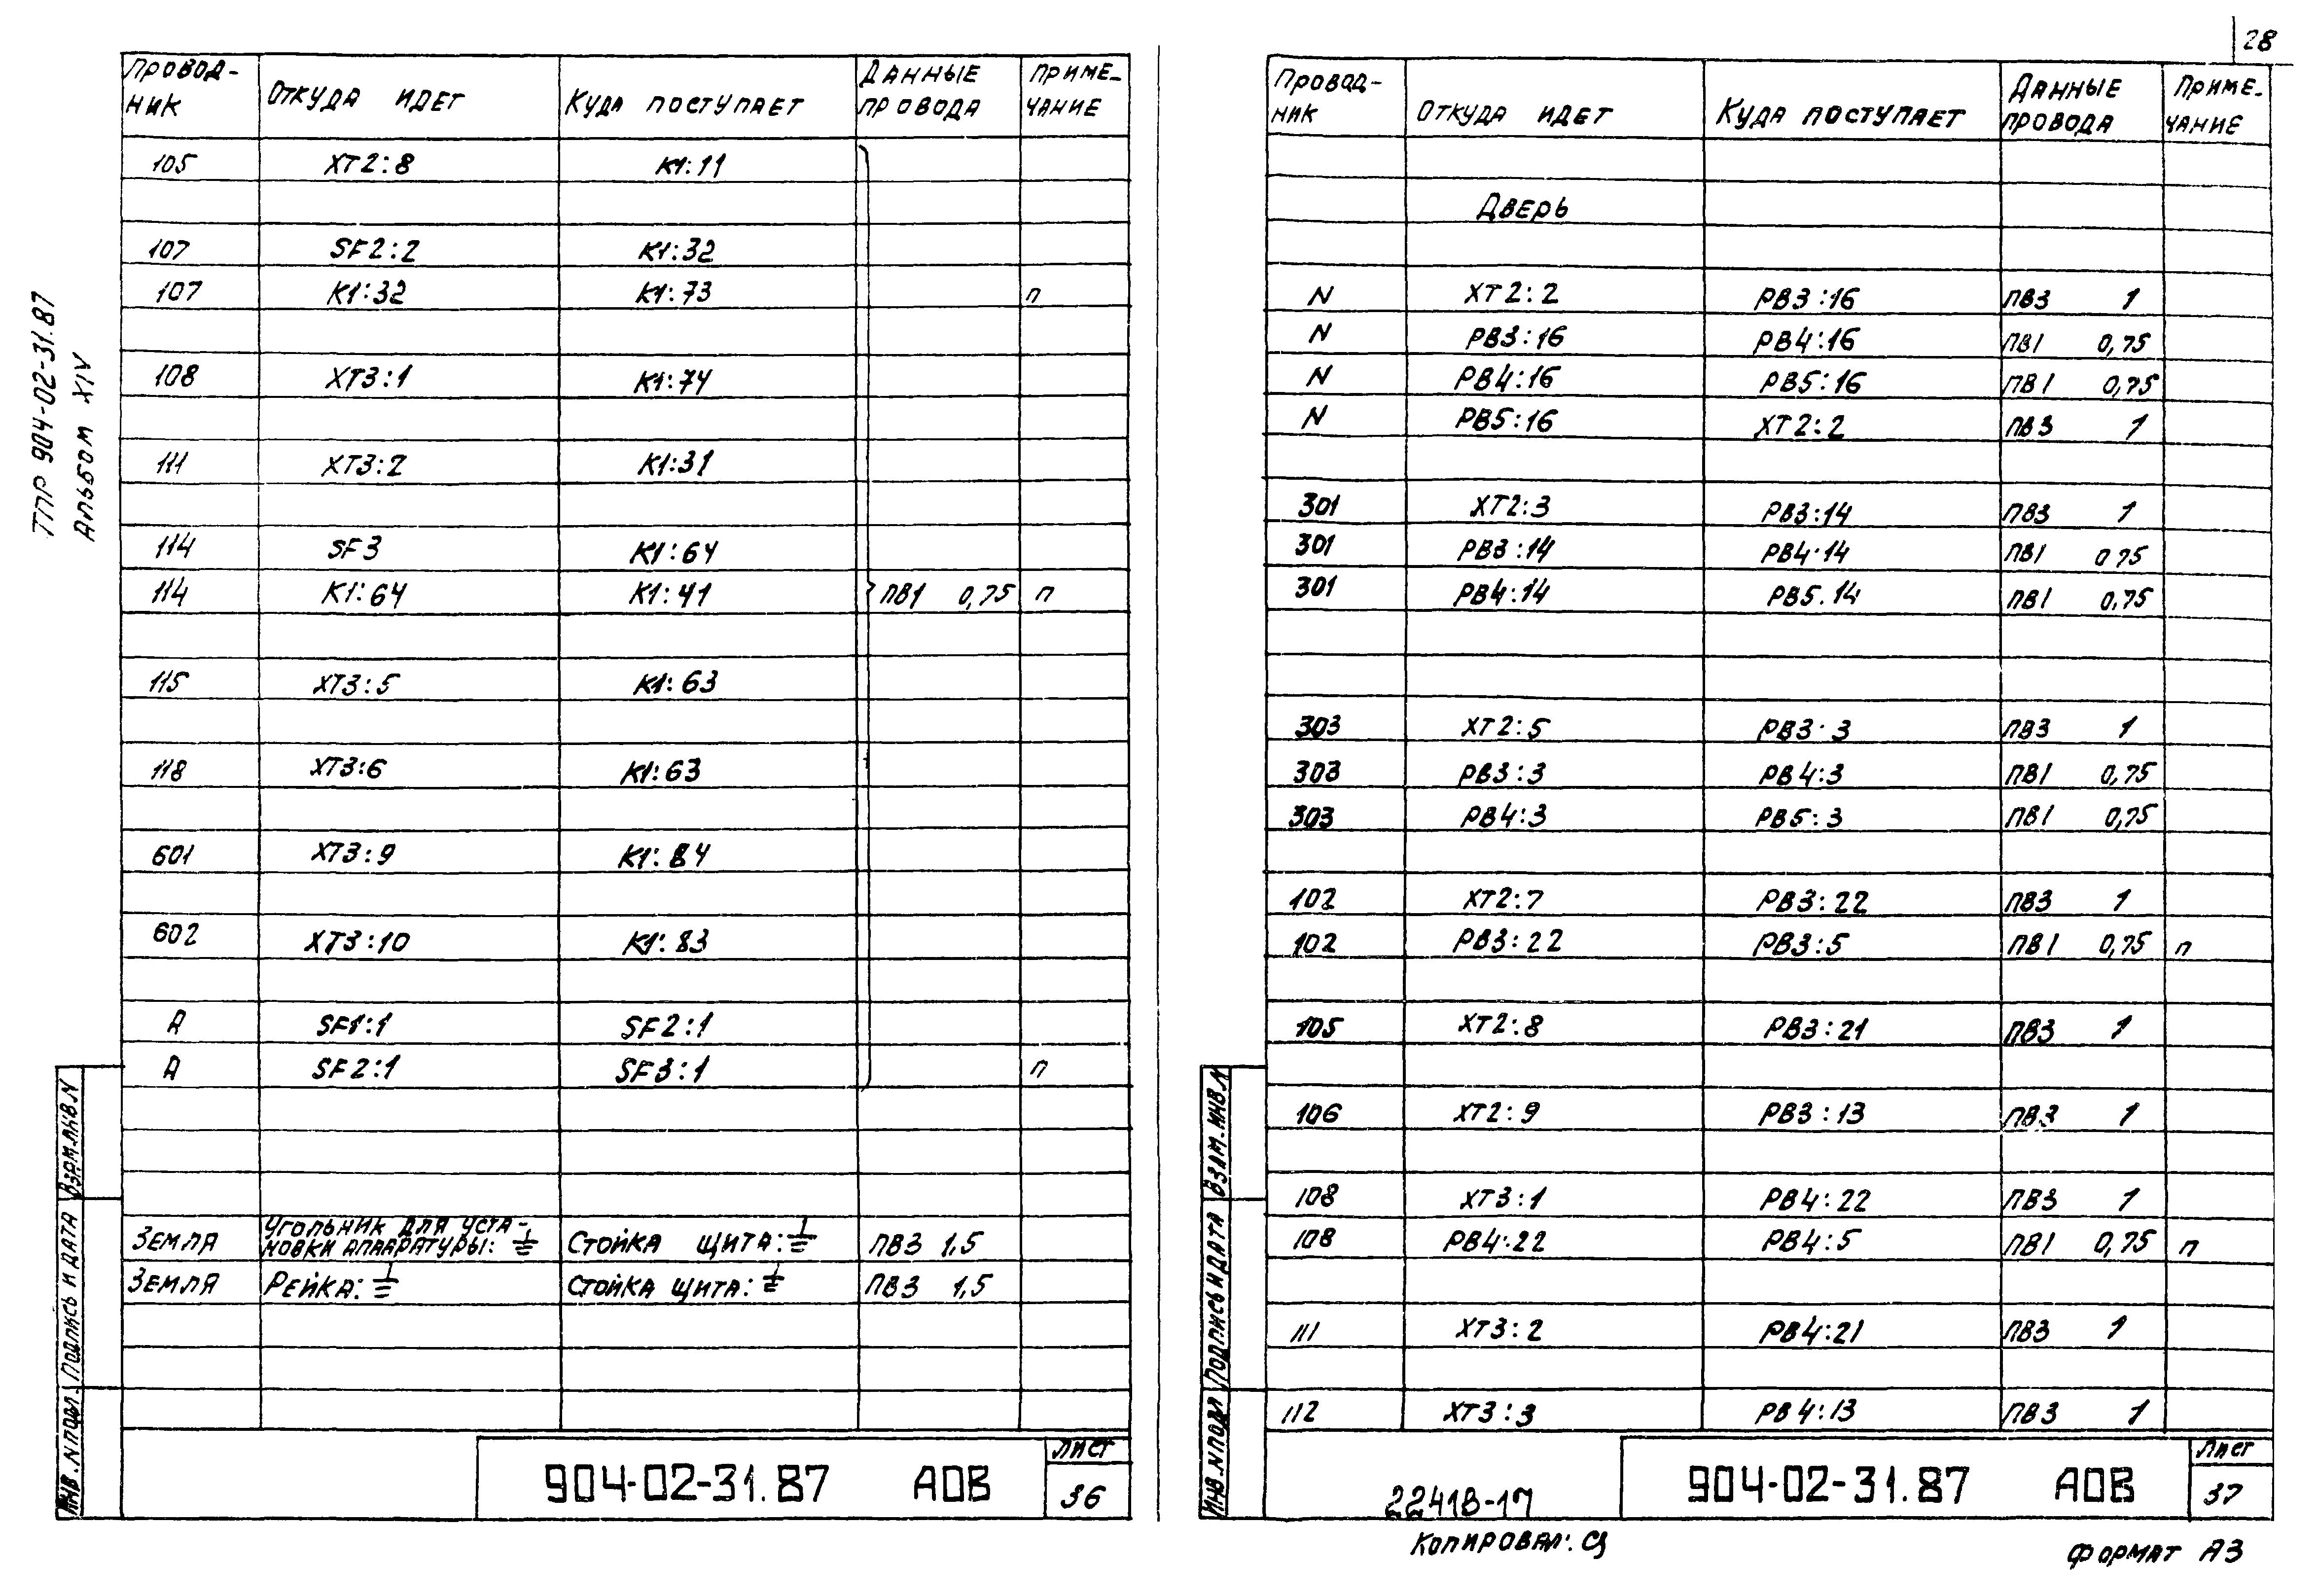 28
ТПР 904-02-31.87
Альбом XIV
Провод-ник Откуда идет Куда поступает Данные провода Приме-чание
105 XT2:8 K1:11
107 SF2:2 K1:32
107 K1:32 K1:73 п
108 XT3:1 K1:74
111 XT3:2 K1:31
114 SF3 K1:64
114 K1:64 K1:41 ПВ1 0,75 п
115 XT3:5 K1:63
118 XT3:6 K1:63
601 XT3:9 K1:84
602 XT3:10 K1:83
А SF1:1 SF2:1
А SF2:1 SF3:1 п
Земля Угольник для уста-
новки аппаратуры: ⏚ Стойка щита: ⏚ ПВ3 1,5
Земля Рейка: ⏚ Стойка щита: ⏚ ПВ3 1,5
Инв. N подл. Подпись и дата Взам. инв. N
904-02-31.87 АОВ Лист
36
Провод-ник Откуда идет Куда поступает Данные провода Приме-чание
Дверь
N XT2:2 РВ3:16 ПВ3 1
N РВ3:16 РВ4:16 ПВ1 0,75
N РВ4:16 РВ5:16 ПВ1 0,75
N РВ5:16 XT2:2 ПВ3 1
301 XT2:3 РВ3:14 ПВ3 1
301 РВ3:14 РВ4:14 ПВ1 0 75
301 РВ4:14 РВ5.14 ПВ1 0,75
303 XT2:5 РВ3:3 ПВ3 1
303 РВ3:3 РВ4:3 ПВ1 0,75
303 РВ4:3 РВ5:3 ПВ1 0,75
102 XT2:7 РВ3:22 ПВ3 1
102 РВ3:22 РВ3:5 ПВ1 0,75 п
105 XT2:8 РВ3:21 ПВ3 1
106 XT2:9 РВ3:13 ПВ3 1
108 XT3:1 РВ4:22 ПВ3 1
108 РВ4:22 РВ4:5 ПВ1 0,75 п
111 XT3:2 РВ4:21 ПВ3 1
112 XT3:3 РВ4:13 ПВ3 1
Инв. N подл Подпись и дата Взам. инв. N
22418-17 904-02-31.87 АОВ Лист
37
Копировал:
Формат А3